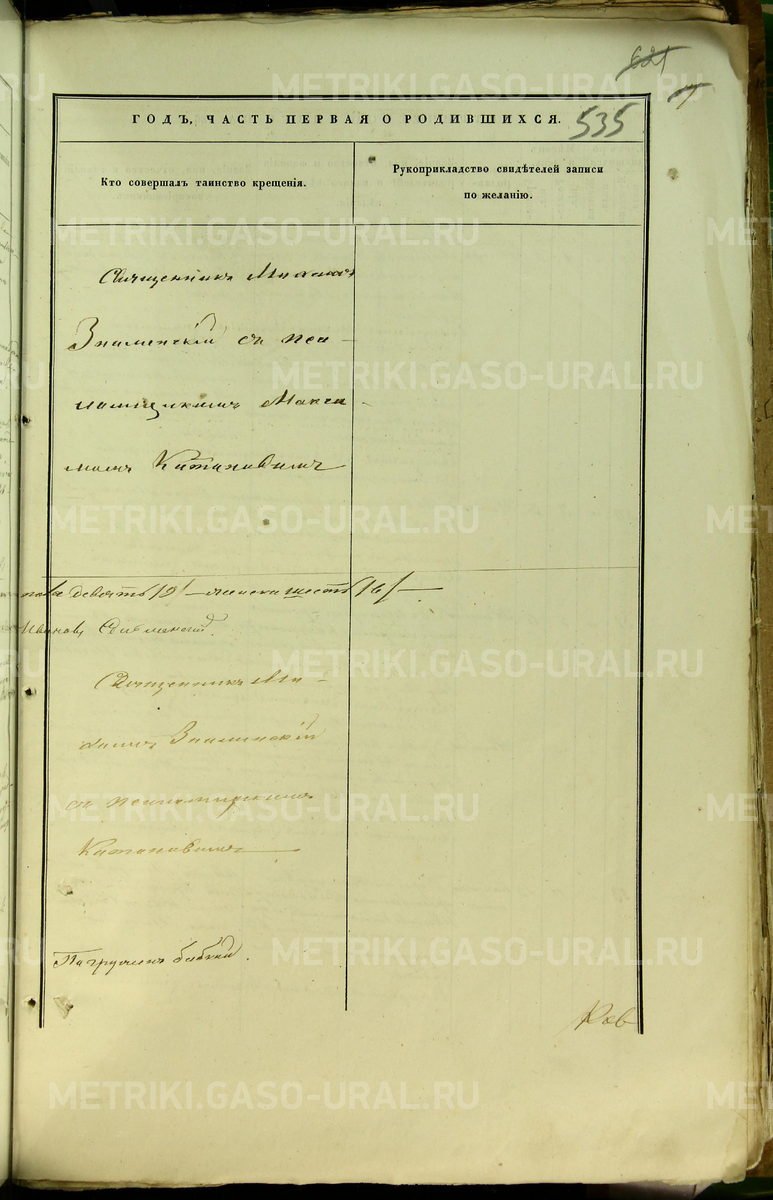 621
535
ГОДЪ, ЧАСТЬ ПЕРВАЯ О РОДИВШИХСЯ.
Кто совершалъ таинство крещенія.
Рукоприкладство свидѣтелей записи
по желанію.
Священникъ Михаилъ
Знаменскій съ пса-
ломщикомъ Макси-
момъ Катановымъ
девять /9/ женска шесть /6/ —
Ивановъ
Священникъ Ми-
хаилъ Знаменскій
съ псаломщикомъ
Катановымъ
Погружен бабкой.
METRIKI.GASO-URAL.RU